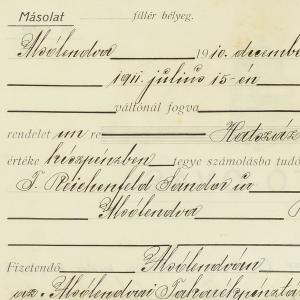 Másolat fillér bélyeg.
Alsólendva 1910. decembe
1911. julius 15-én
váltónál fogva
rendelet ro Hatszáz
értéke készpénzben tegye számolásba tudó
T. Reichenfeld Sándor úr
Alsólendva
Fizetendő Alsólendván
az Alsólendvai Takarékpénztá